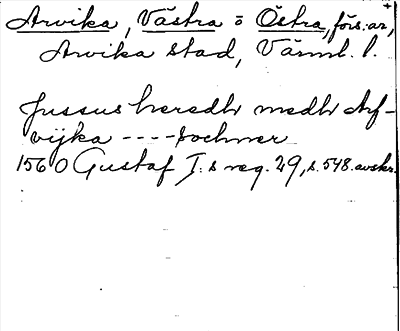 Arvika, Västra o Östra, förs:ar,
Arvika stad, Värml. l.
Jussus heredh medh Arf-
vijka ---- sochner
1560 Gustaf I:s reg. 29, s. 548. avskr.